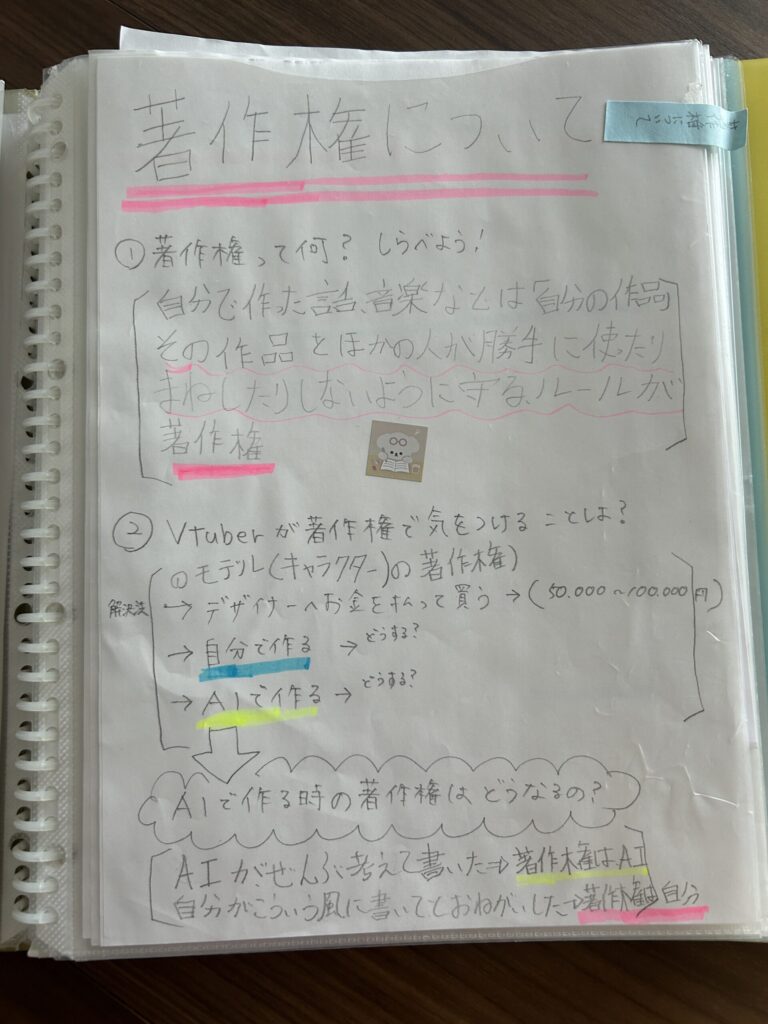 著作権について
著作権について
① 著作権って何? しらべよう!
自分で作った話、音楽などは「自分の作品」
その作品をほかの人が勝手に使たり
まねしたりしないように守る、ルールが
著作権
② Vtuberが著作権で気をつけることは?
① モデル(キャラクター)の著作権)
解決法 → デザイナーへお金を払って買う → (50.000~100.000円)
→ 自分で作る → どうする?
→ AIで作る → どうする?
AIで作る時の著作権は、どうなるの?
AIが、ぜんぶ考えて書いた⇒著作権はAI
自分がこういう風に書いてとおねがいした⇒著作権は自分